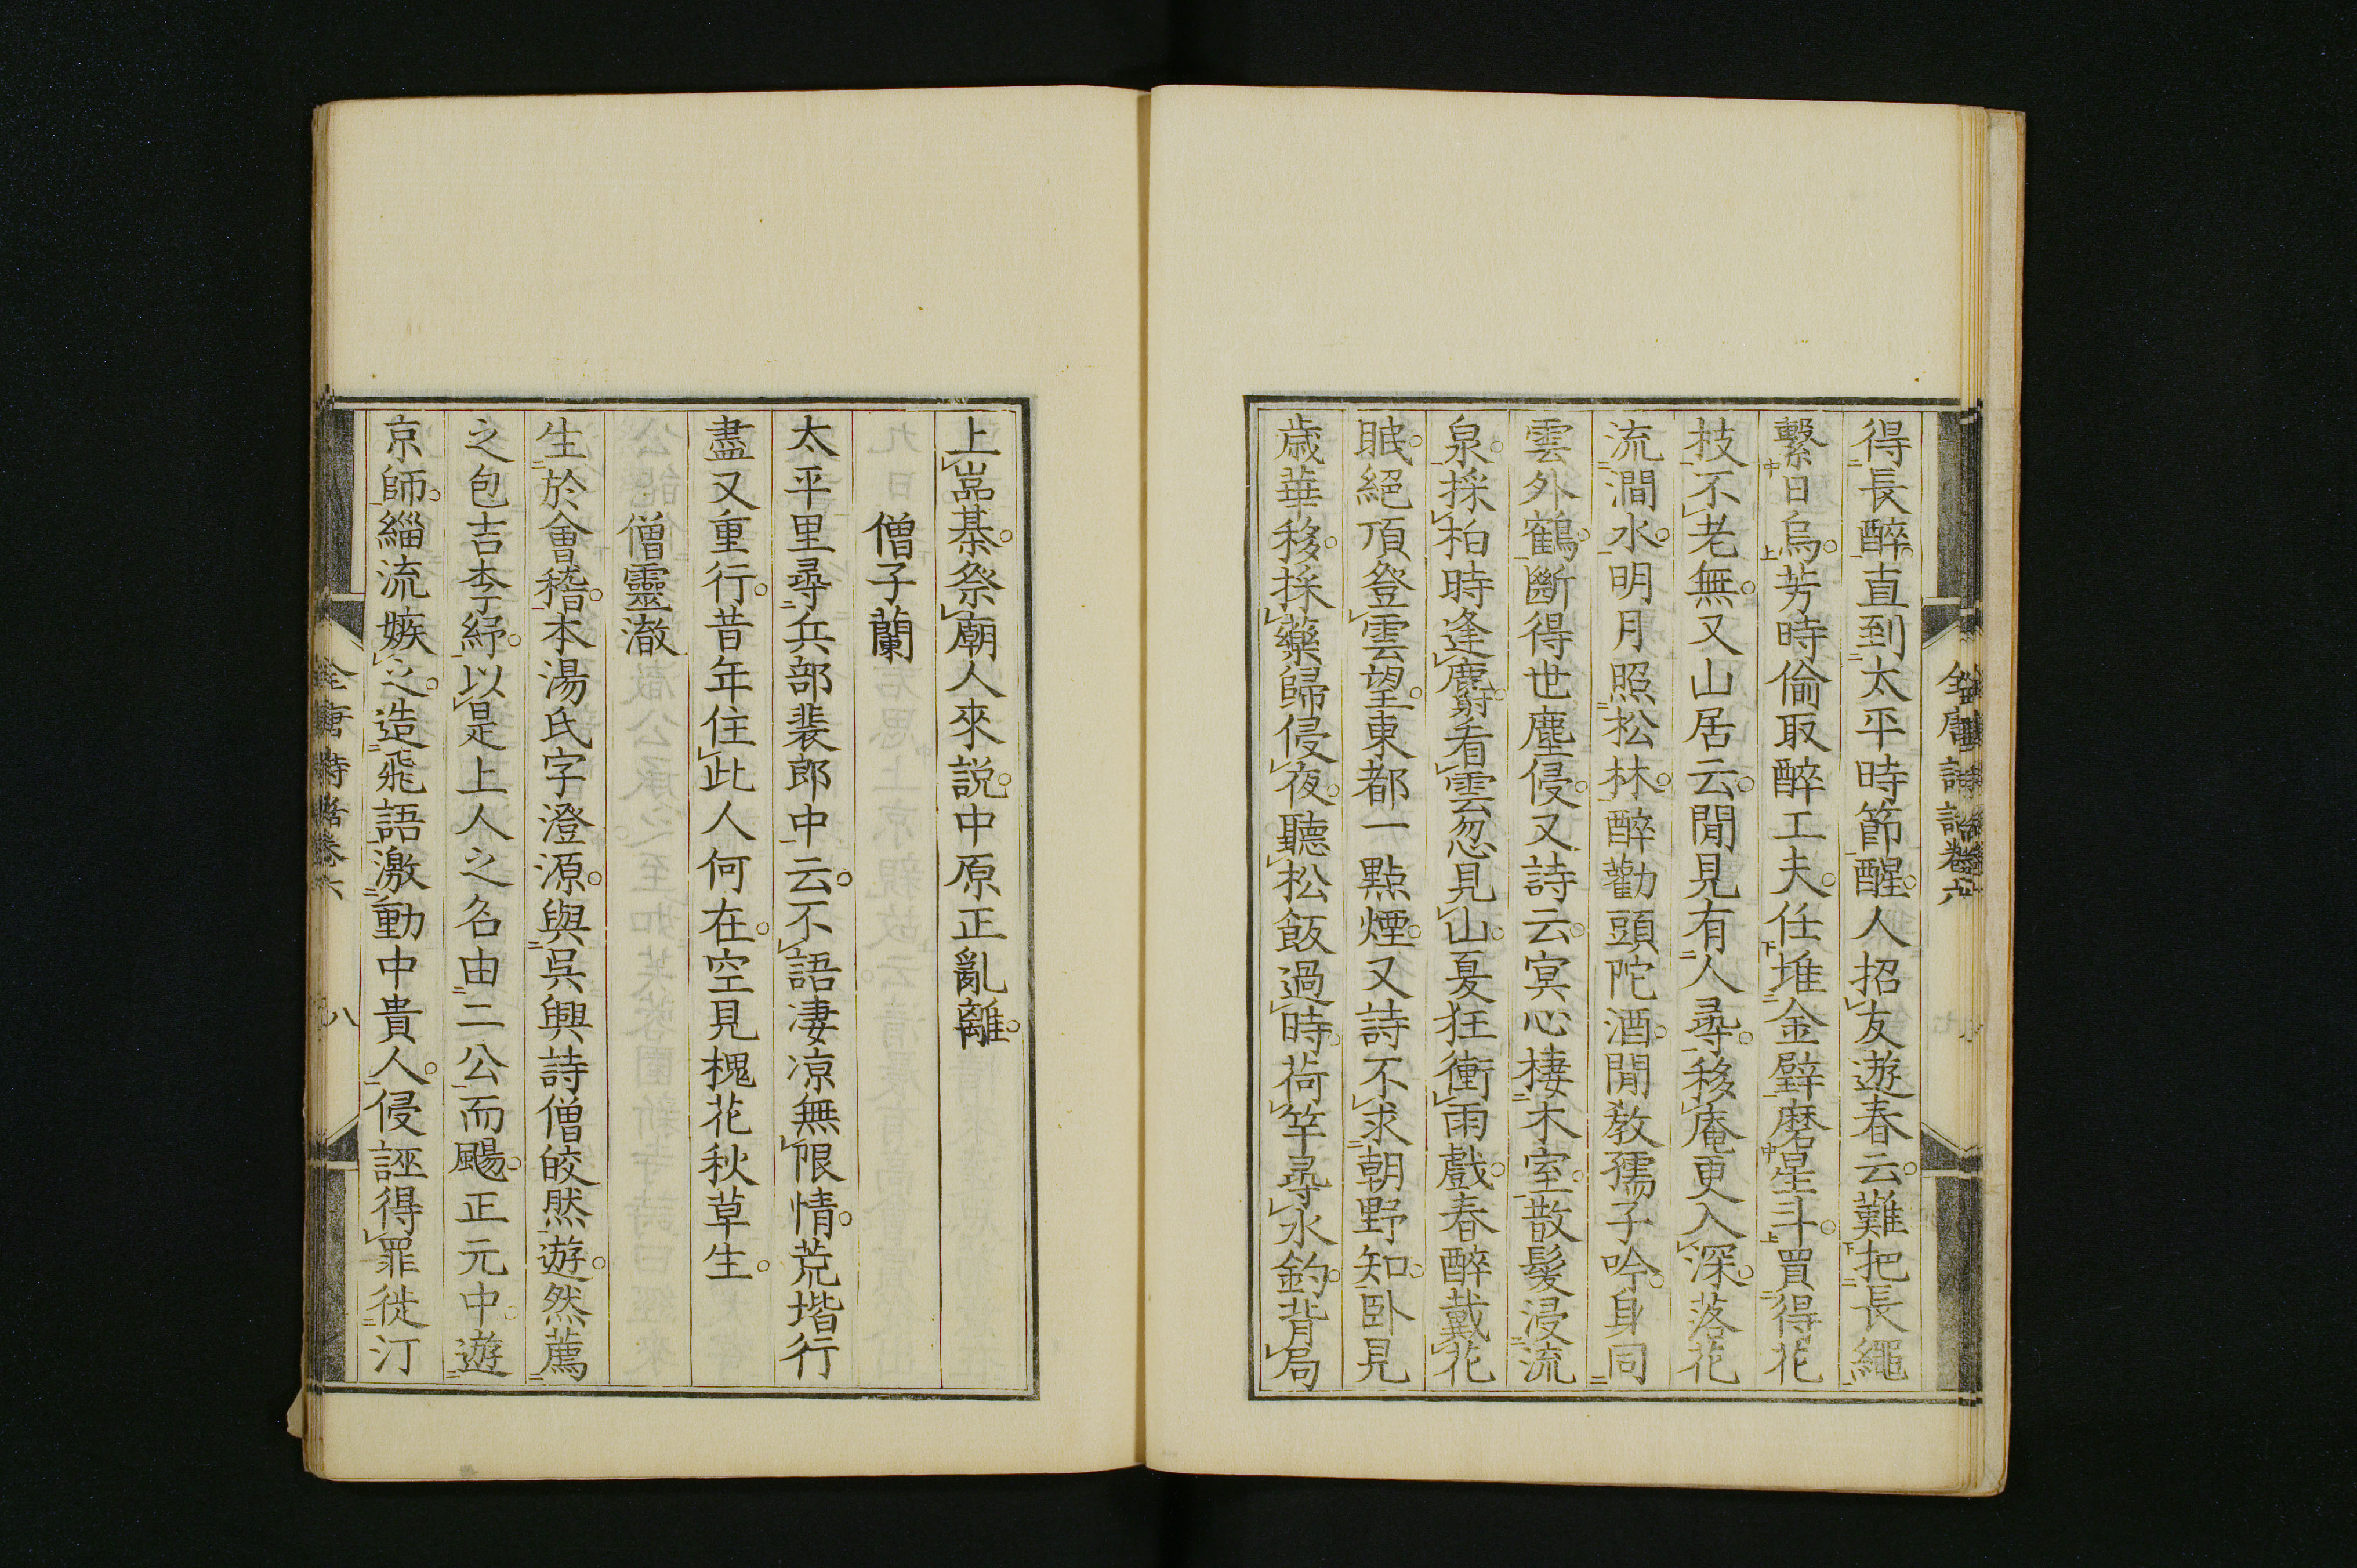 全唐詩話卷六
得長醉直到太平時節醒人招友遊春云難把長繩
繫日烏芳時偷取醉工夫任堆金璧磨星斗買得花
枝不老無又山居云閒見有人尋移庵更入深落花
流澗水明月照松林醉勸頭陀酒閒教孺子吟身同
雲外鶴斷得世塵侵又詩云寞心棲木室散髮浸流
泉採柏時逢麝看雲忽見山夏狂衝雨戲春醉戴花
眠絕頂登雲望東都一點煙又詩不求朝野知臥見
歲華移採藥歸侵夜聽松飯過時荷竿尋水釣背局
上嵓棊祭廟人來說中原正亂離
僧子蘭
太平里尋兵部裴郎中云不語淒凉無限情荒堦行
盡又重行昔年住此人何在空見槐花秋草生
僧靈澈
生於會稽本湯氏字澄源與吳興詩僧皎然遊然薦
之包吉李紓以是上人之名由二公而颺正元中遊
京師緇流嫉之造飛語激動中貴人侵誣得罪徙汀
全唐詩話卷六
八